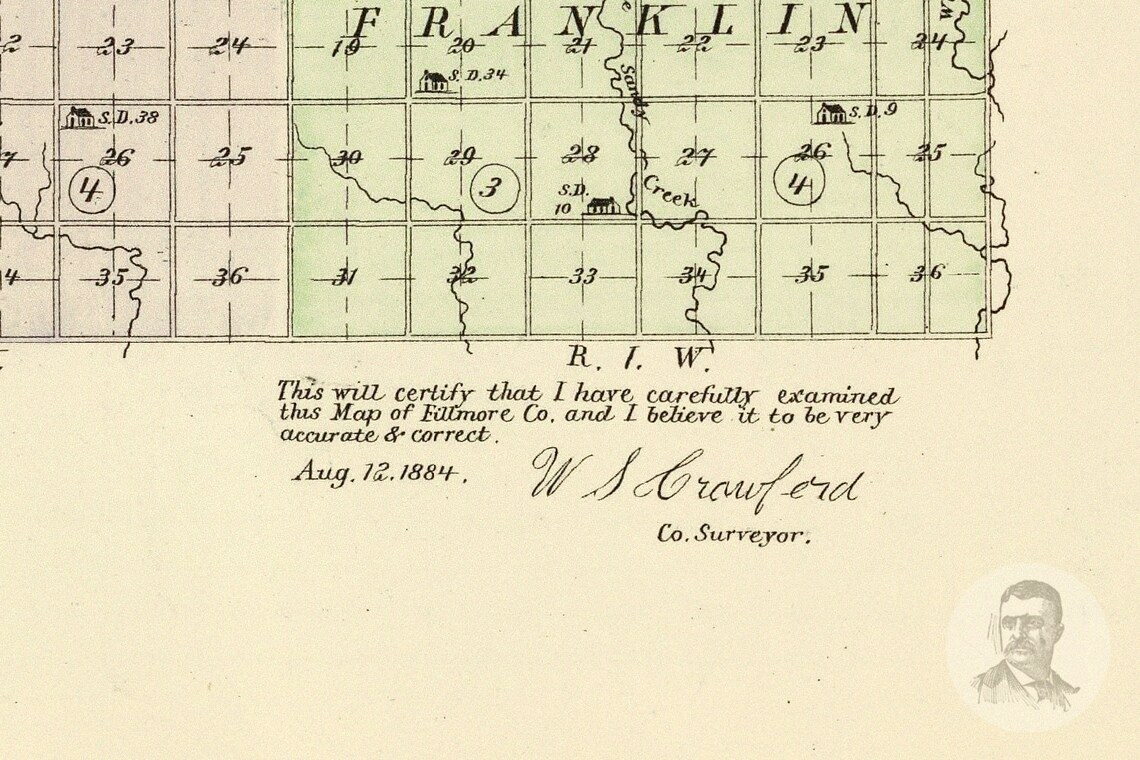 F R A N K L I N
23 24 19 20 21 22 23 24
S.D. 34
Sandy
S.D. 38
S.D. 9
26 25 30 29 28 27 26 25
4 3 4
S.D.
10
Creek
35 36 31 32 33 34 35 36
R. I. W.
This will certify that I have carefully examined
this Map of Fillmore Co. and I believe it to be very
accurate & correct.
Aug. 12. 1884.
W S Crawford
Co. Surveyor.